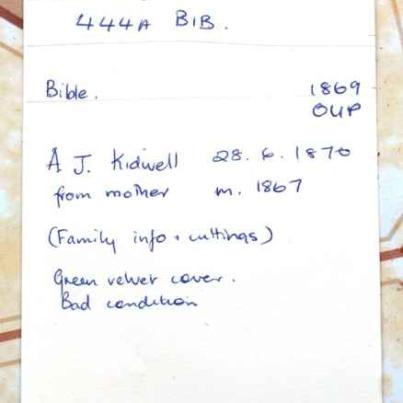 444A BIB.
Bible. 1869
OUP
A J. Kidwell 28.6.1870
from mother m. 1867
(Family info + cuttings)
Green velvet cover.
Bad condition